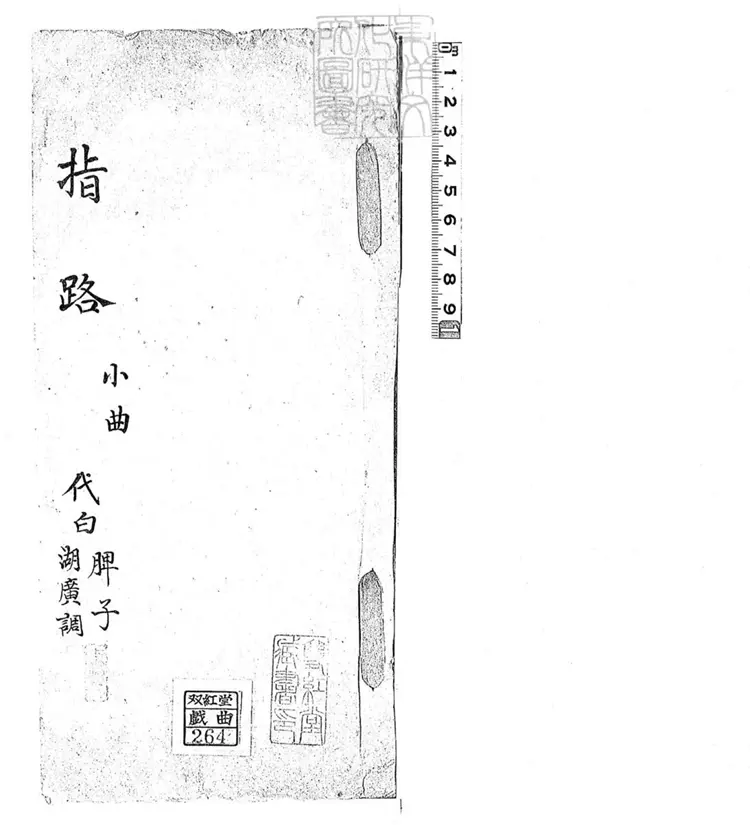 指路
小曲
代白
脾子
湖廣調
双紅堂
戲曲
264
東洋文
化研究
所圖書
雙紅堂
藏書印
cm
0 1 2 3 4 5 6 7 8 9 10